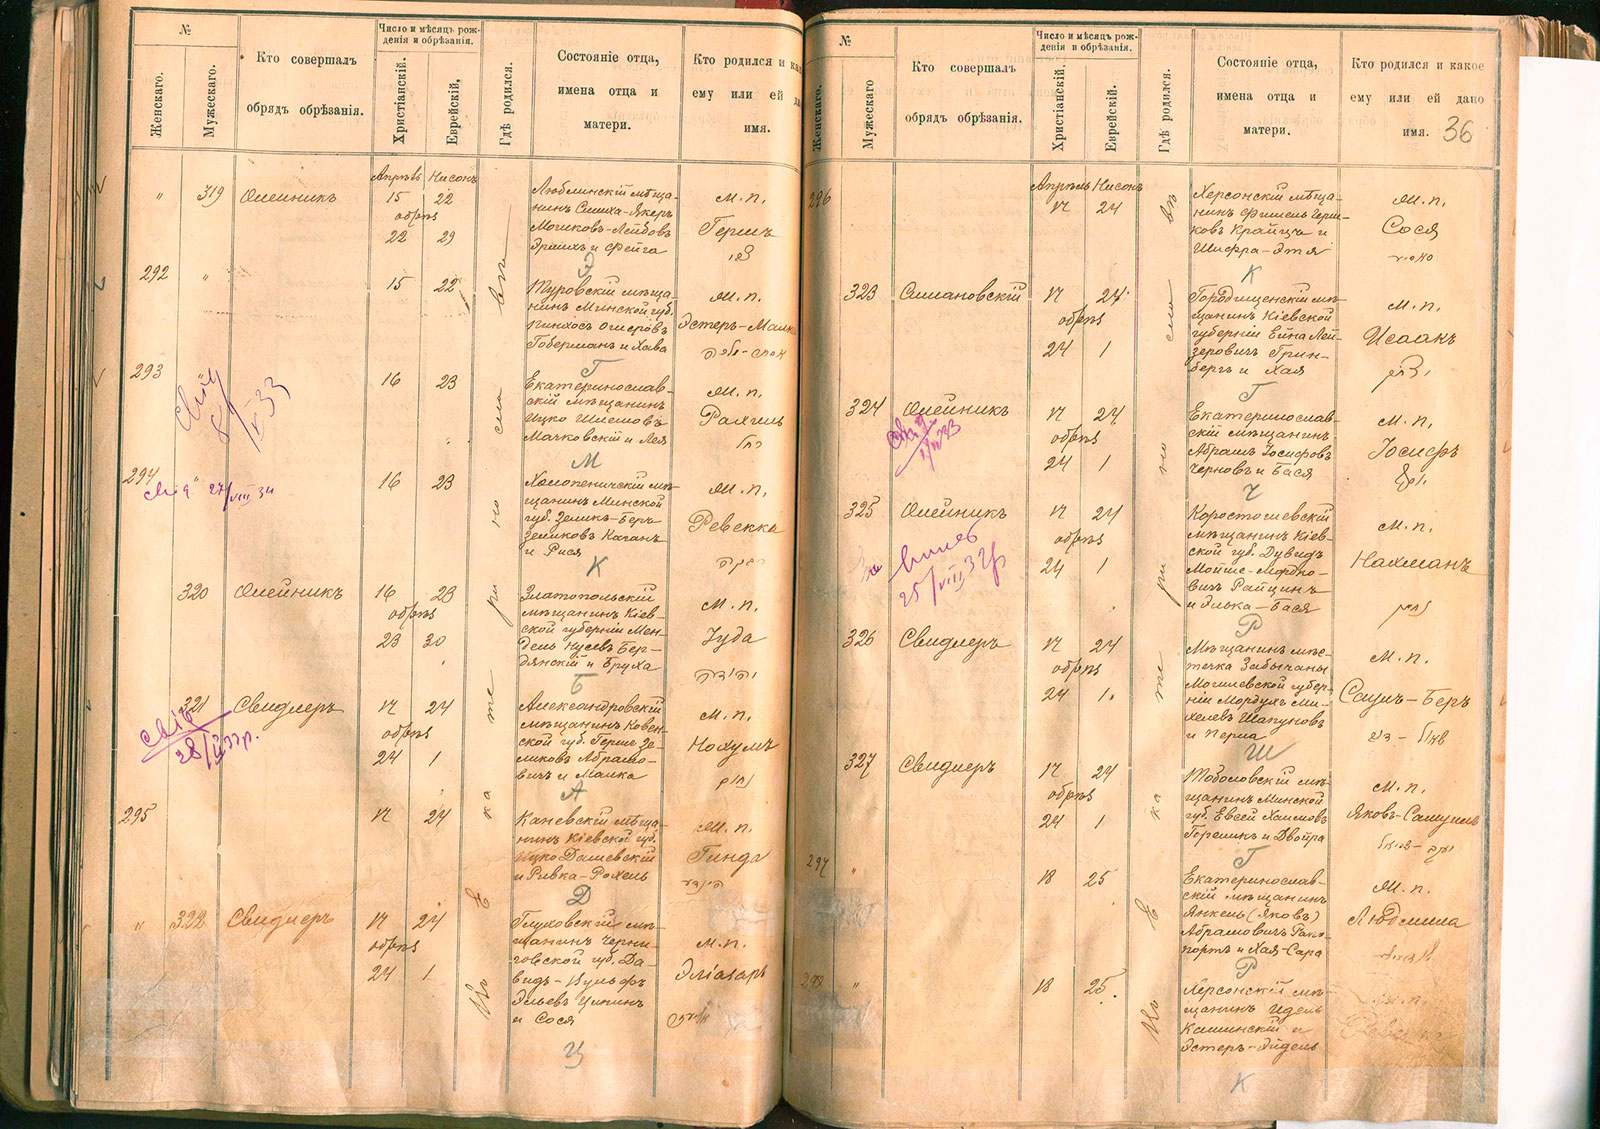 №
Женскаго.
Мужескаго.
Кто совершалъ
обрядъ обрѣзанія.
Число и мѣсяцъ рож-
денія и обрѣзанія.
Христіанскій.
Еврейскій,
Гдѣ родился.
Состояніе отца,
имена отца и
матери.
Кто родился и как
ему или ей да
имя.
Апрѣль Нисонъ
" 319 Олейникъ 15 22
обрѣз
22 29
Люблинскій мѣща-
нинъ Симха-Якеръ
Мошковъ-Лейбовъ
Эрлихъ и Фейга
Э
м. п.
Гершъ
292 " 15 22
Туровскій мѣща-
нинъ Минской губ.
Пинхосъ Ошеровъ
Гоберманъ и Хава
Г
м. п.
Эстеръ-Малка
אסתר-מלכה
293 16 23
Екатеринослав-
скій мѣщанинъ
Ицко Шлемовъ
Мачковскій и Лея
М
м. п.
Рахиль
רחל
294 " 16 23
27/VIII 34
Холопеничскій мѣ-
щанинъ Минской
губ. Зеликъ-Беръ
Зеликовъ Каганъ
и Рися
К
м. п.
Ревекка
רבקה
320 Олейникъ 16 23
обрѣз
23 30
Златопольскій
мѣщанинъ Кіев-
ской губерніи Мен-
дель Нусевъ Бер-
дянскій и Бруха
Б
м. п.
Іуда
יהודה
321 Свидлеръ 17 24
обрѣз
24 1
Александровскій
мѣщанинъ Ковен-
ской губ. Герше Зе-
ликовъ Абрамо-
вичъ и Малка
А
м. п.
Нохумъ
נחום
295 17 24
Каневскій мѣща-
нинъ Кіевской губ.
Ицко Дашевскій
и Ривка-Рохель
Д
м. п.
Гинда
הינדע
" 322 Свидлеръ 17 24
обрѣз
24 1
Глуховскій мѣ-
щанинъ Черни-
говской губ. Да-
видъ-Вульфъ
Эльевъ Ципинъ
и Сося
Ц
м. п.
Эліазаръ
Въ Екатеринославѣ
№
Женскаго.
Мужескаго
Кто совершалъ
обрядъ обрѣзанія.
Число и мѣсяцъ рож-
денія и обрѣзанія.
Христіанскій.
Еврейскій.
Гдѣ родился.
Состояніе отца,
имена отца и
матери.
Кто родился и какое
ему или ей дано
имя. 36
Апрѣль Нисонъ
296 17 24
Херсонскій мѣща-
нинъ Фишель Герш-
ковъ Крайцъ и
Шифра-Этя
К
м. п.
Сося
323 Симановскій 17 24
обрѣз
24 1
Городищенскій мѣ-
щанинъ Кіевской
губерніи Ейна Лей-
зеровичъ Грин-
бергъ и Хая
Г
м. п.
Исаакъ
יצחק
324 Олейникъ 17 24
обрѣз
24 1
Екатеринослав-
скій мѣщанинъ
Абрамъ Іосифовъ
Черновъ и Бася
Ч
м. п.
Іосифъ
יוסף
325 Олейникъ 17 24
обрѣз
24 1
25/VIII 32 г
Коростошевскій
мѣщанинъ Кіев-
ской губ. Дувидъ
Мойше-Мордко-
вичъ Райцинъ
и Элька-Бася
Р
м. п.
Нахманъ
נחמן
326 Свидлеръ 17 24
обрѣз
24 1.
Мѣщанинъ мѣс-
течка Забычаны
Могилевской губер-
ніи Мордухъ Ми-
хелевъ Шапуновъ
и Перла
Ш
м. п.
Саулъ-Беръ
שאול-בער
327 Свидлеръ 17 24
обрѣз
24 1
Тоболовскій мѣ-
щанинъ Минской
губ. Евсей Хаимовъ
Гореликъ и Двойра
Г
м. п.
Яковъ-Самуилъ
יעקב-שמואל
297 " 18 25
Екатеринослав-
скій мѣщанинъ
Янкель (Яковъ)
Абрамовичъ Рапо-
портъ и Хая-Сара
Р
м. п.
Людмила
298 " 18 25.
Херсонскій мѣ-
щанинъ Идель
Каминскій и
Эстеръ-Эйдель
К
м. п.
Въ Екатеринославѣ